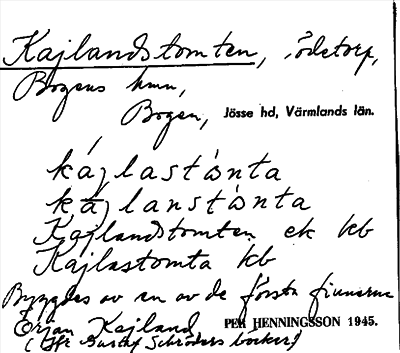 Kajlandstomten, ödetorp,
Bogens hmn,
Bogen, Jösse hd, Värmlands län.
kájlastὼnta
kájlanstὼnta
Kajlandstomten ek kb
Kajlastomta kb
Byggdes av en av de första finnarne
Erjan Kajland PER HENNINGSSON 1945.
(Jfr Gustaf Schröders böcker)